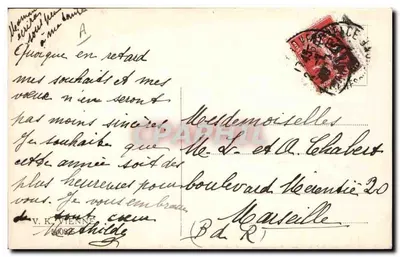 Maman
écrira
sous peu
à ma tante
A
Quoique en retard
mes souhaits et mes
vœux n'en seront
pas moins sincères.
Je souhaite que
cette année soit des
plus heureuses pour
vous. Je vous embrasse
de tout cœur
Mathilde
V. K. VIENNE
Mesdemoiselles
M. L- et A. Chabert
boulevard 20
Marseille
(B d R)